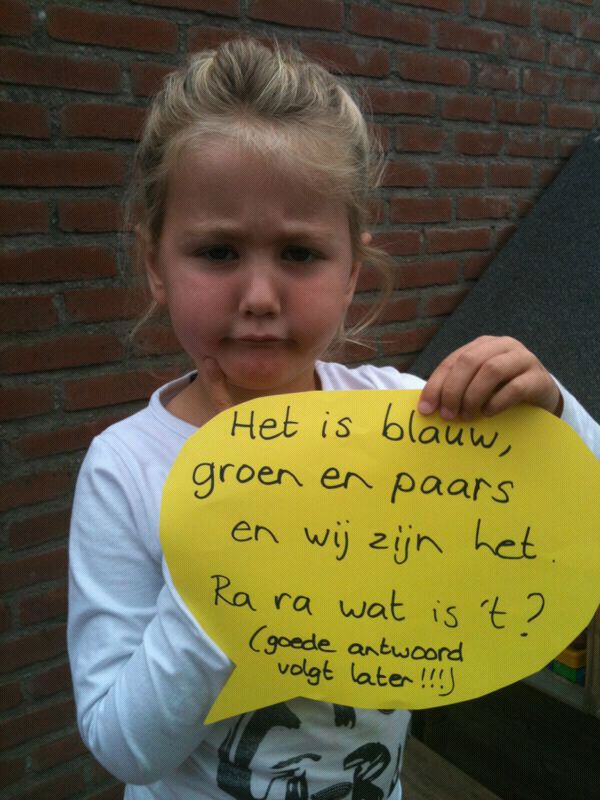 Het is blauw,
groen en paars
en wij zijn het.
Ra ra wat is 't?
(goede antwoord
volgt later!!!)